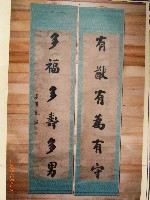 有猷有為有守
多福多壽多男